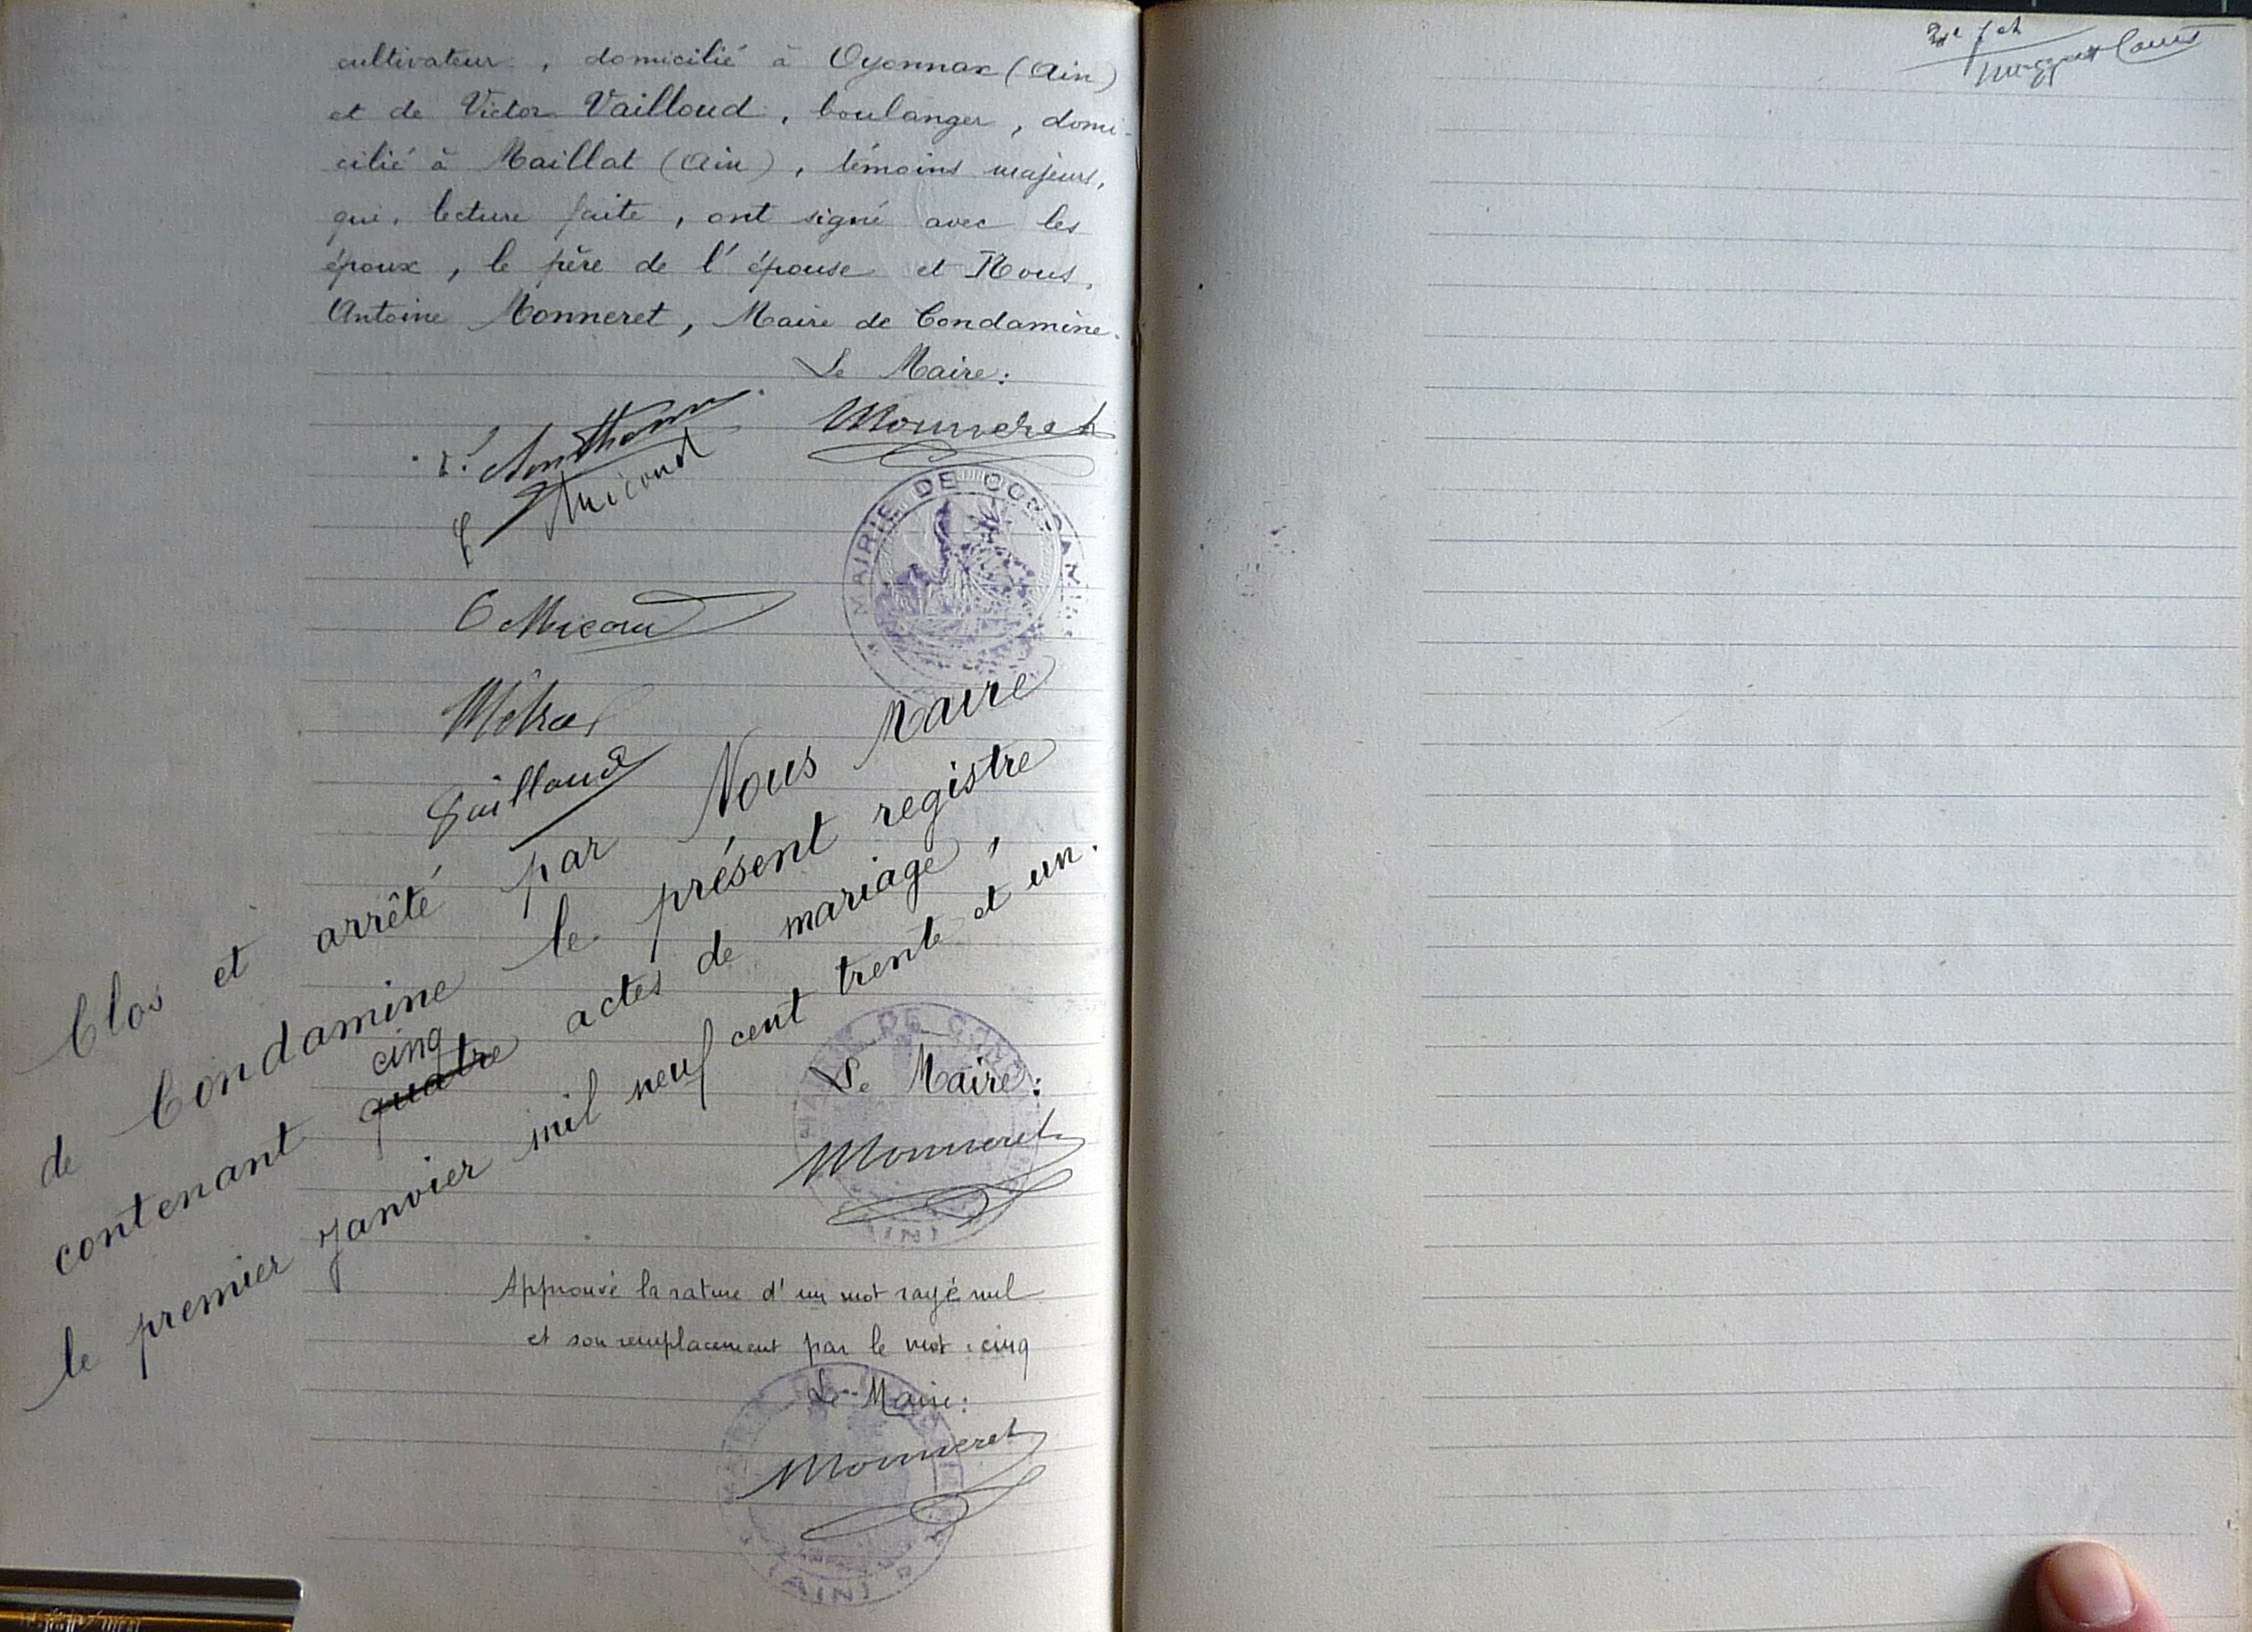 cultivateur, domicilié à Oyonnax (Ain)
et de Victor Vailloud, boulanger, domi-
cilié à Maillat (Ain), témoins majeurs,
qui, lecture faite, ont signé avec les
époux, le père de l'épouse et Nous,
Antoine Monneret, Maire de Condamine.
Le Maire:
Monneret
Micoud
MAIRIE DE CONDAM
C Micoud
Métral
Vailloud
Clos et arrêté par Nous Maire
de Condamine le présent registre
cinq
contenant quatre actes de mariage,
le premier janvier mil neuf cent trente et un.
Le Maire:
Monneret
(AIN)
Approuvé la rature d'un mot rayé nul
et son remplacement par le mot : cinq
Le Maire:
Monneret
(AIN)